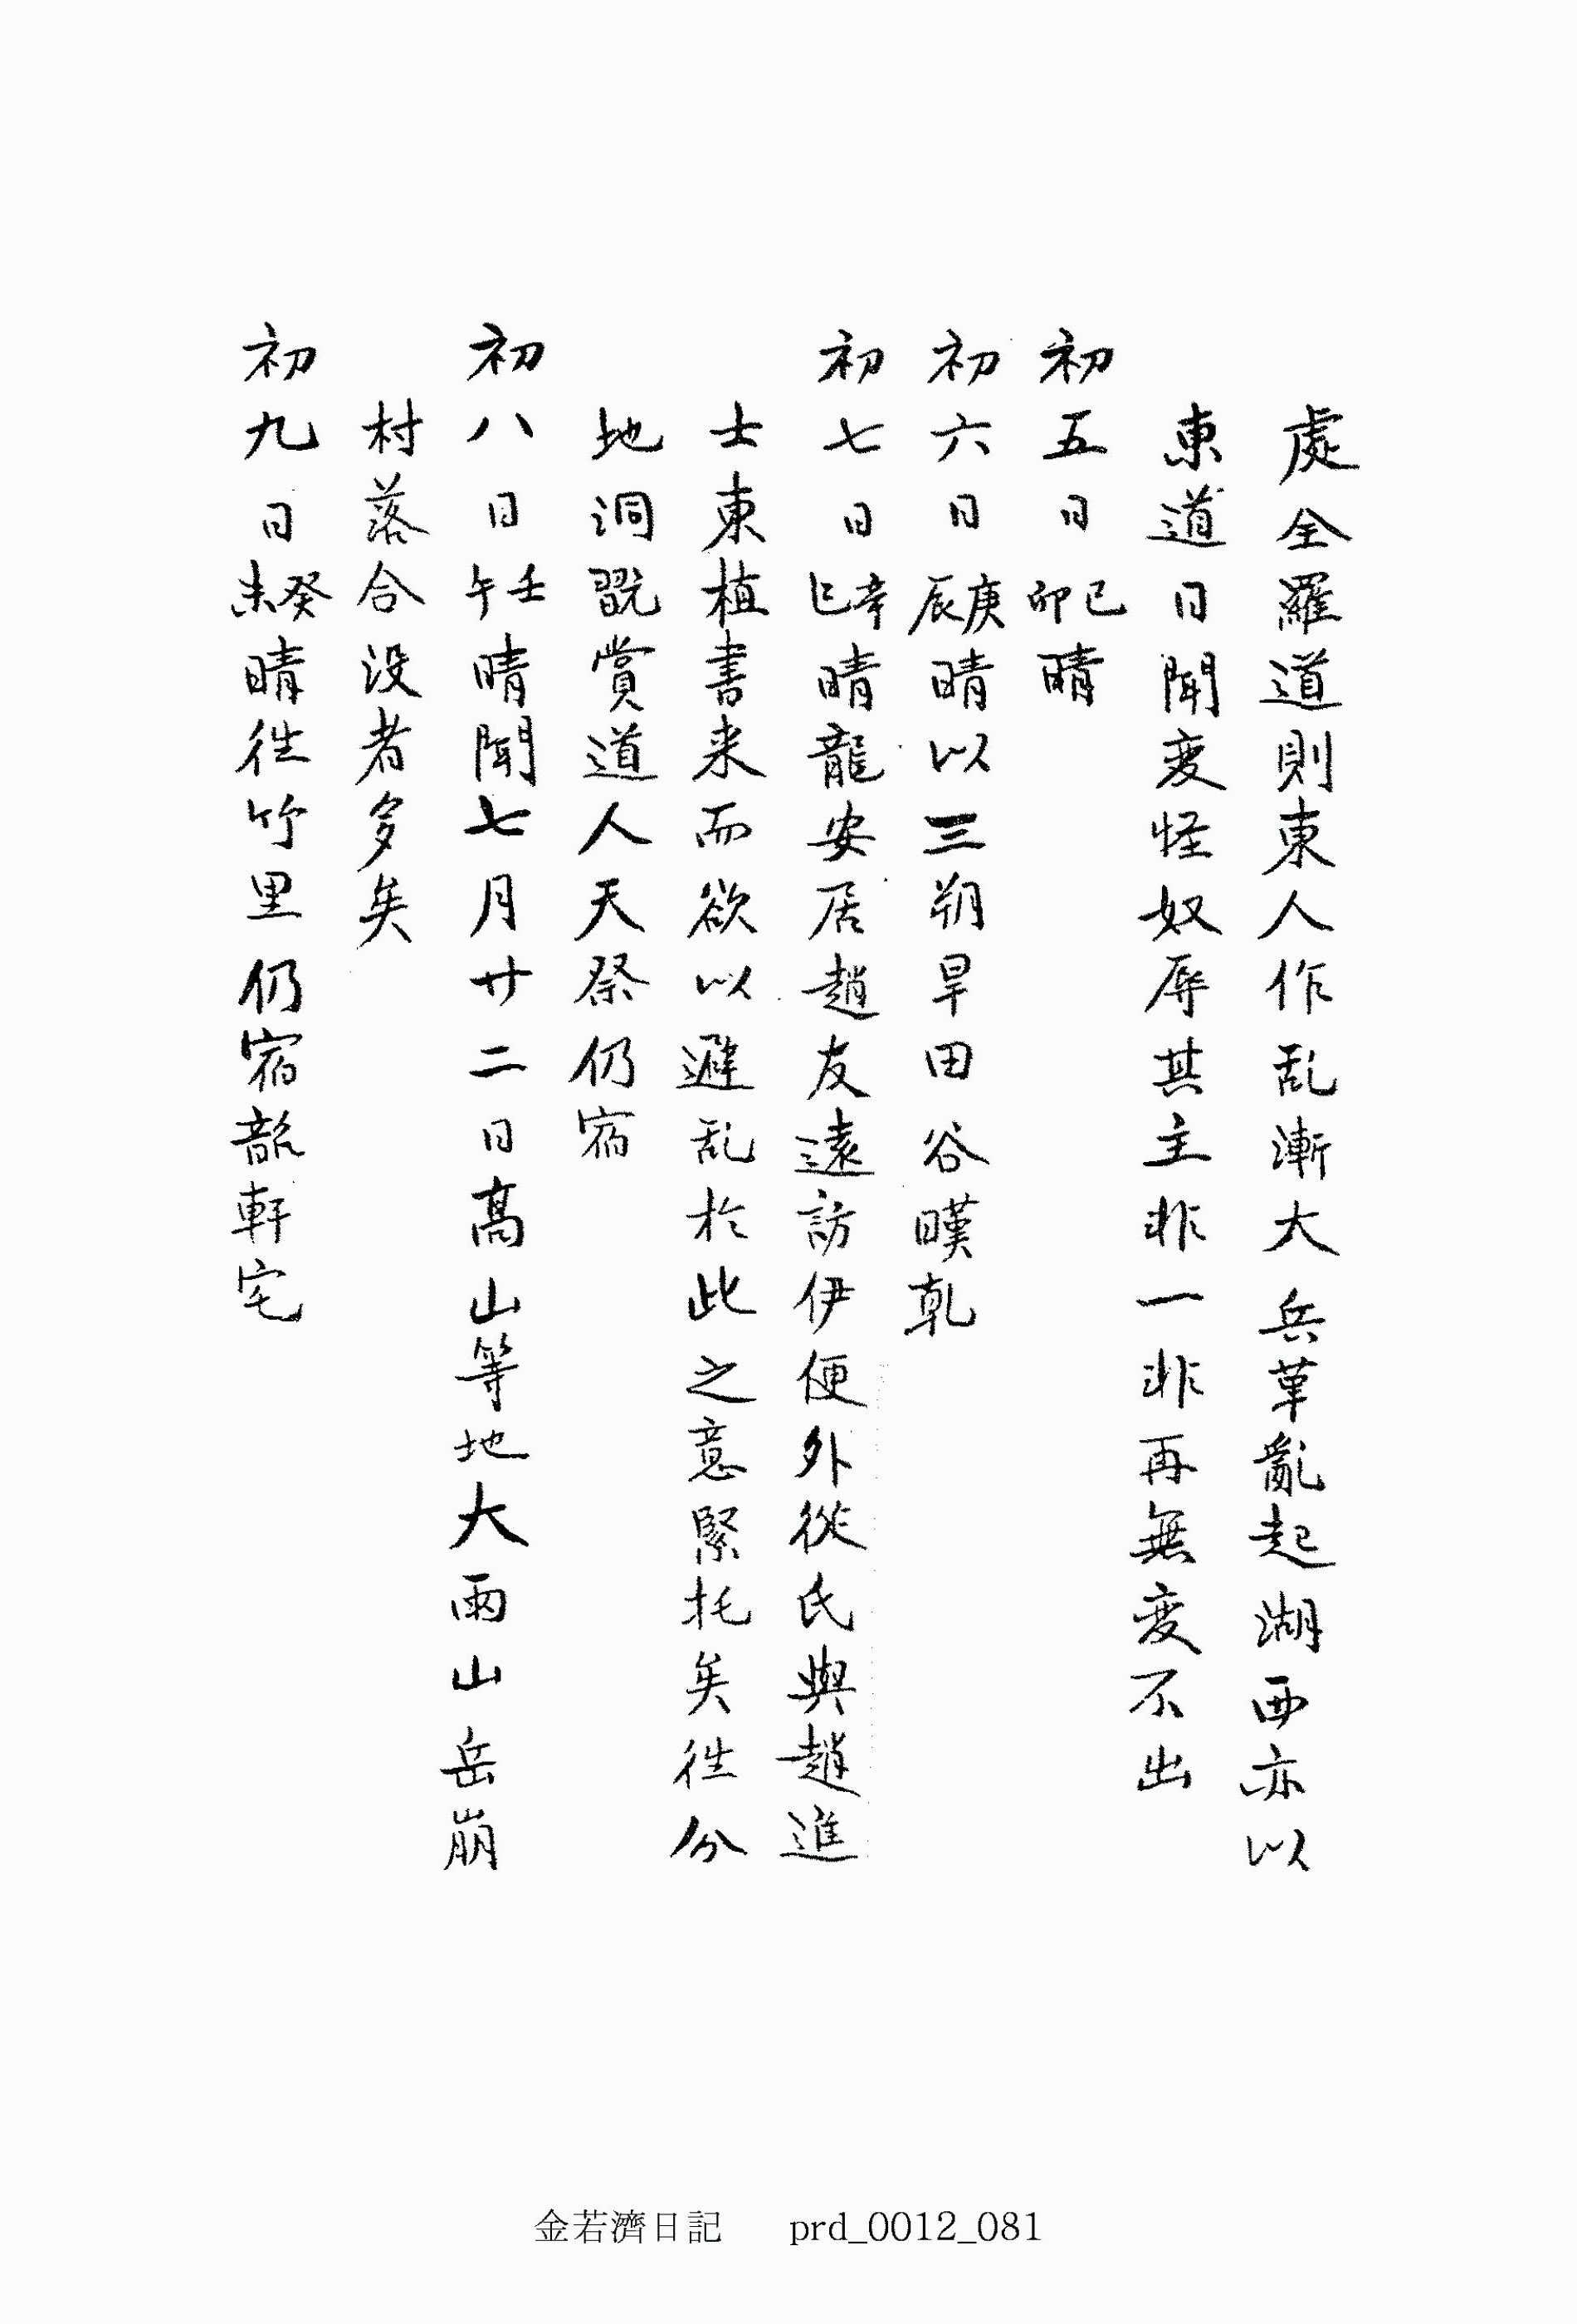 處全羅道則東人作乱漸大兵革亂起湖西亦以
東道日聞变怪奴辱其主非一非再無变不出
初五日己卯晴
初六日庚辰晴以三朔旱田谷暵乾
初七日辛巳晴龍安居趙友遠訪伊便外從氏與趙進
士東植書来而欲以避乱於此之意緊托矣徃分
地洞翫賞道人天祭仍宿
初八日壬午晴聞七月廿二日高山等地大雨山岳崩
村落合没者多矣
初九日癸未晴徃竹里仍宿韶軒宅
金若濟日記 prd_0012_081